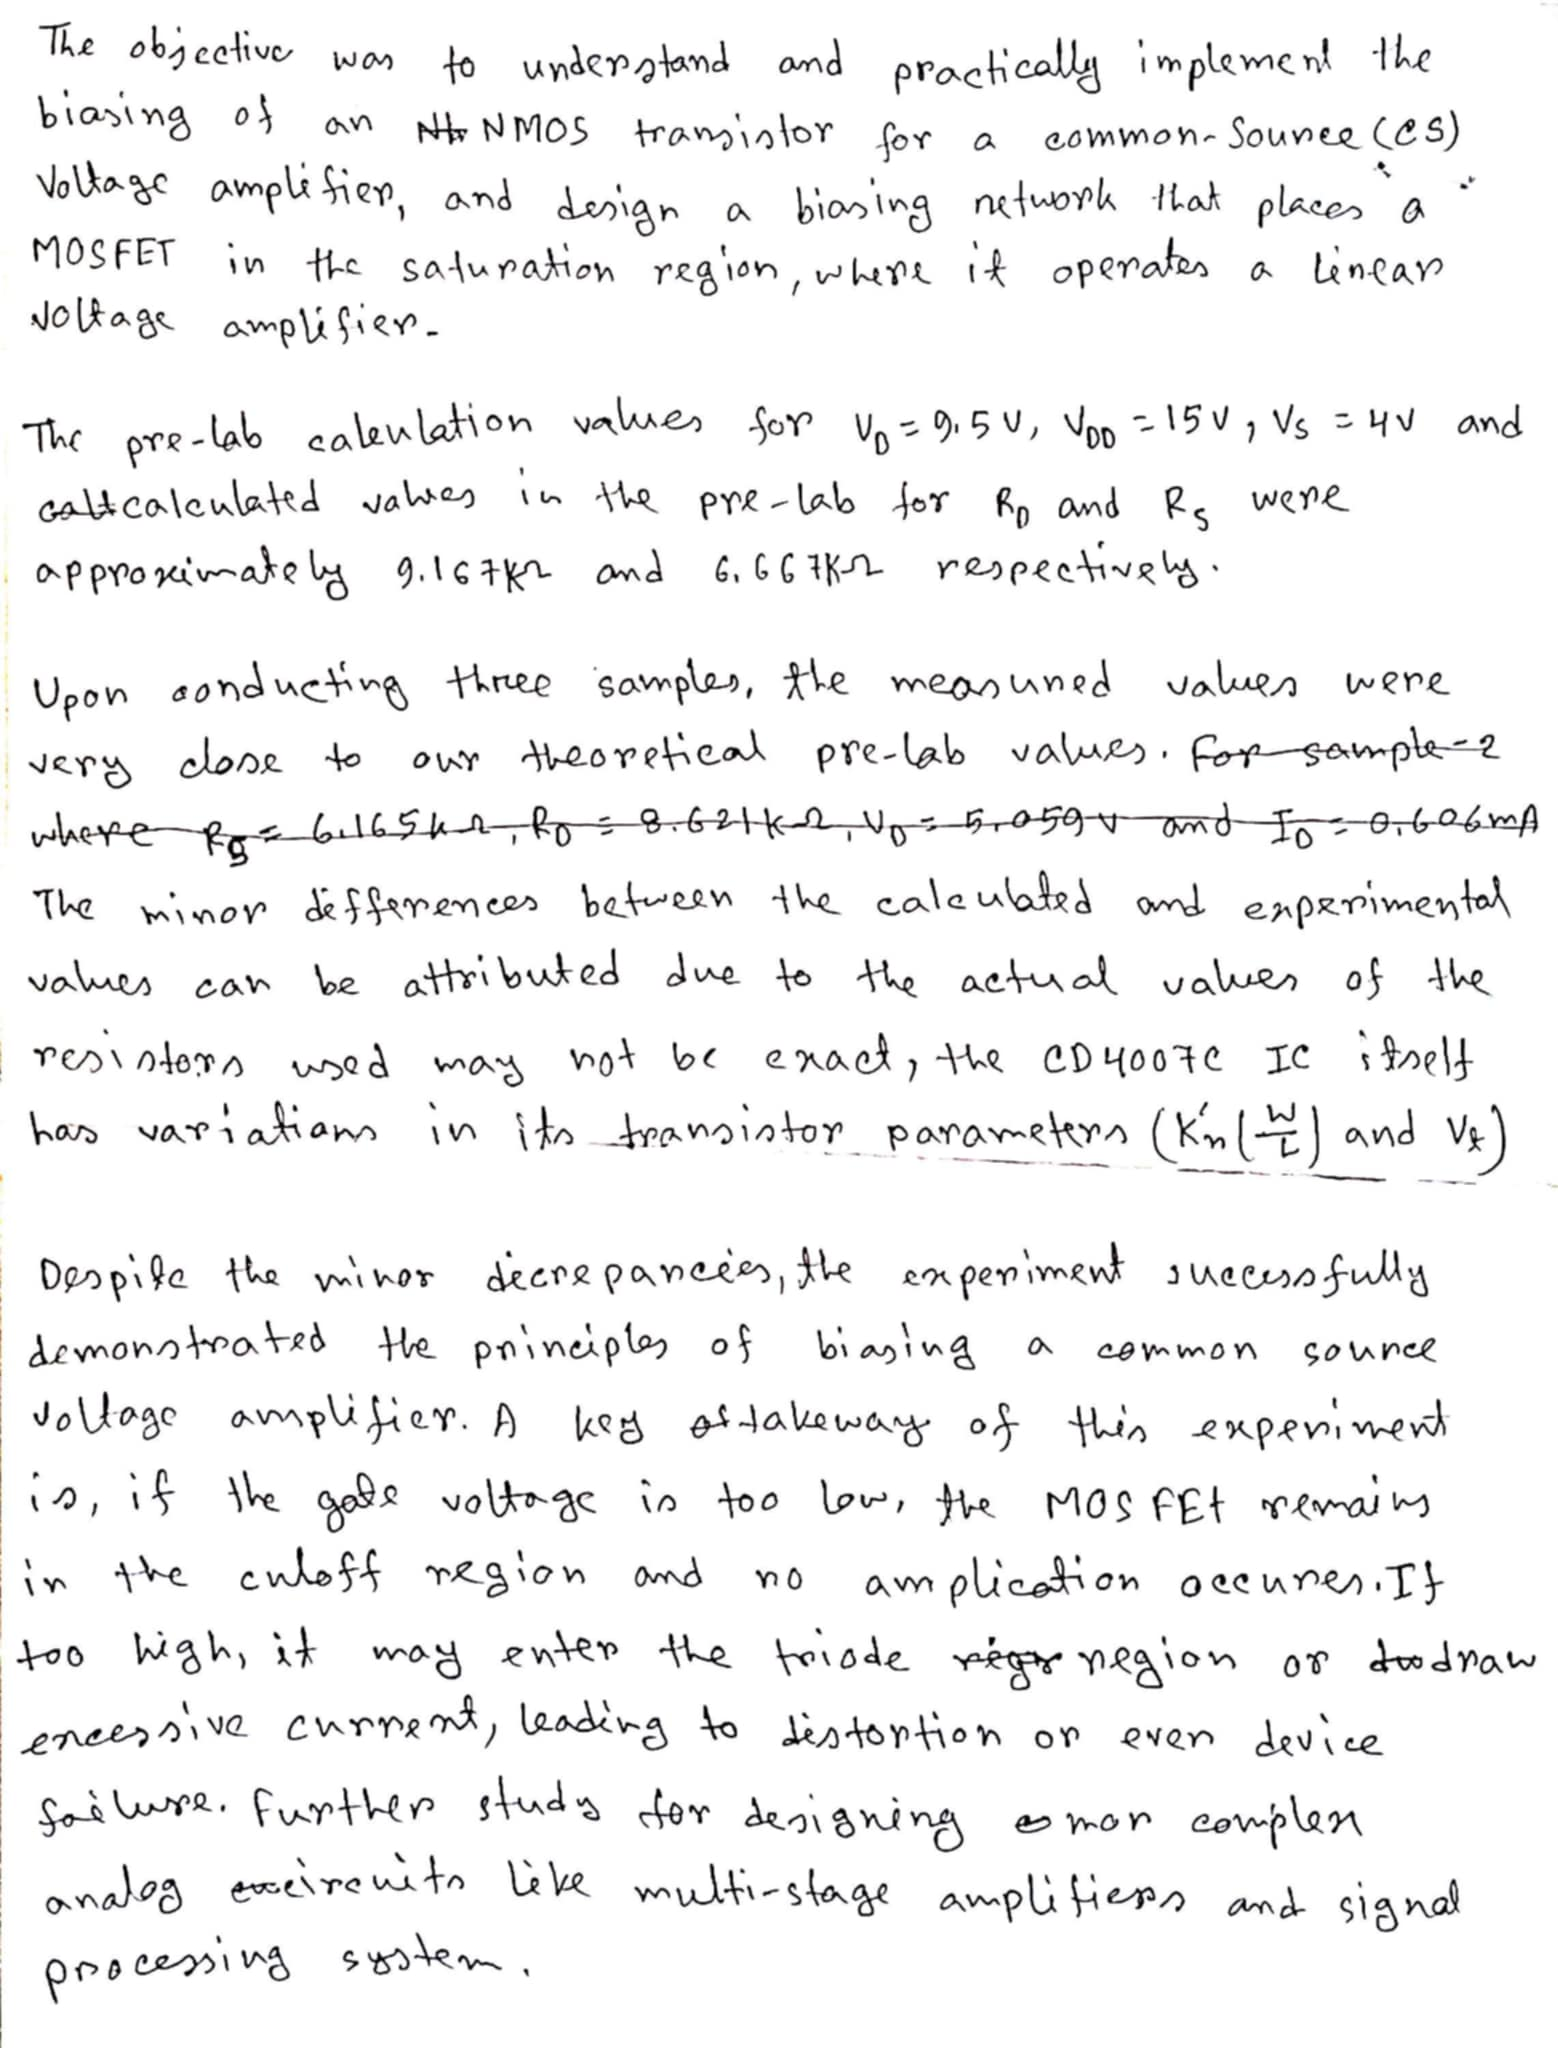 The objective was to understand and practically implement the
biasing of an NMOS transistor for a common-Source (CS)
Voltage amplifier, and design a biasing network that places a
MOSFET in the saturation region, where it operates a linear
voltage amplifier.
The pre-lab calculation values for V_D = 9.5V, V_DD = 15V, V_S = 4V and
calculated values in the pre-lab for R_D and R_S were
approximately 9.167KΩ and 6.667KΩ respectively.
Upon conducting three samples, the measured values were
very close to our theoretical pre-lab values. For sample-2
where R_S = 6.165kΩ, R_D = 8.621kΩ, V_D = 5.059V and I_D = 0.606mA
The minor differences between the calculated and experimental
values can be attributed due to the actual values of the
resistors used may not be exact, the CD4007C IC itself
has variations in its transistor parameters (K'n(W/L) and Vt)
Despite the minor dicrepancies, the experiment successfully
demonstrated the principles of biasing a common source
voltage amplifier. A key of takeway of this experiment
is, if the gate voltage is too low, the MOSFET remains
in the cutoff region and no amplication occures. If
too high, it may enter the triode region or draw
excessive current, leading to distortion or even device
failure. Further study for designing mor complex
analog circuits like multi-stage amplifiers and signal
processing system.